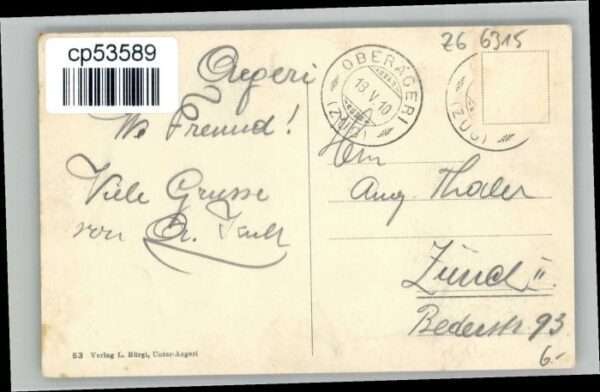 cp53589
ZG 6315
Aegeri
OBERÄGERI
13 V 10
(ZUG)
(ZUG)
Freund!
Viele Grüsse
von
Herrn
Aug. Thaler
Zürich II.
Bederstr. 93
6.-
53 Verlag L. Bürgi, Unter-Aegeri